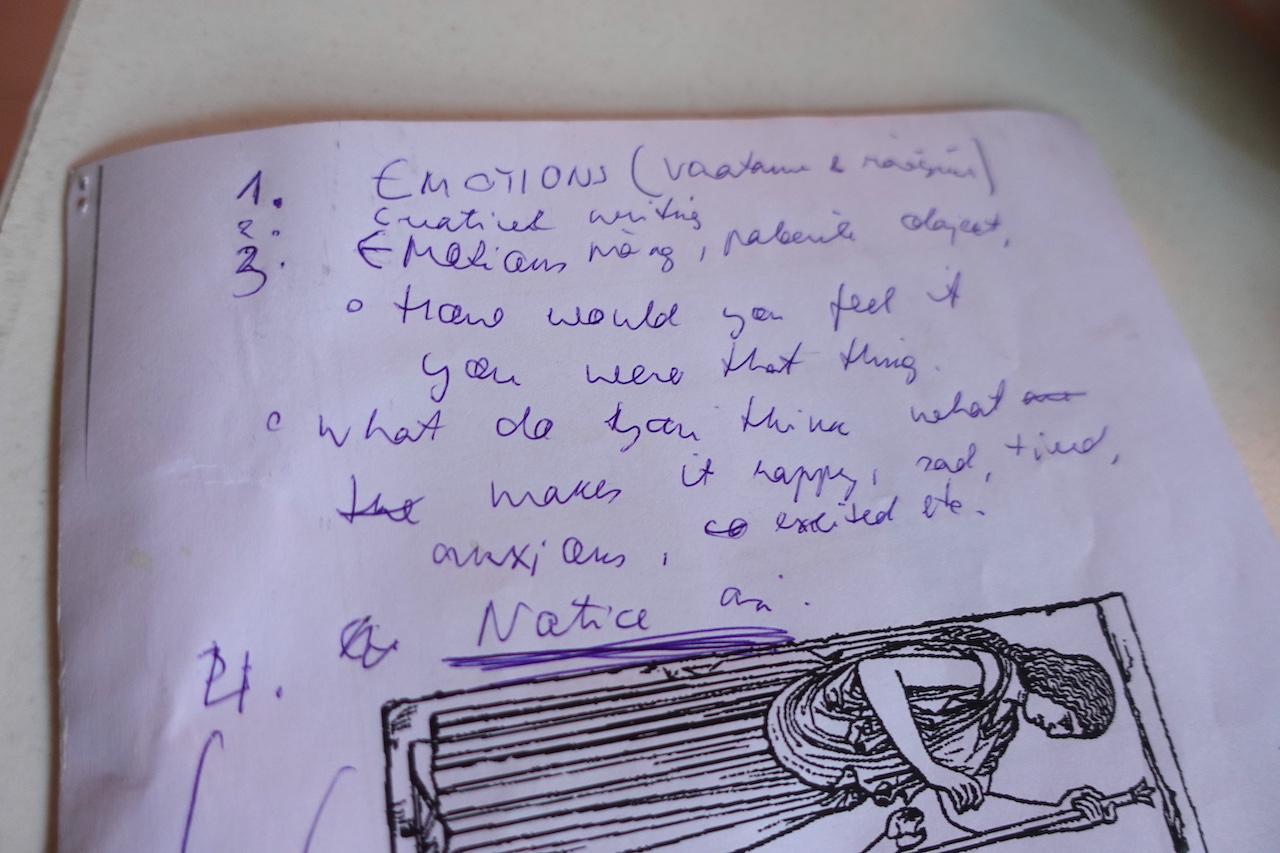 1. EMOTIONS (vaatame & räägime)
2. creative writing
3. EMotions mäng, paberile object,
o How would you feel if
you were that thing.
o what do you think what
makes it happy, sad, tired,
anxious, excited etc.
4. Notice